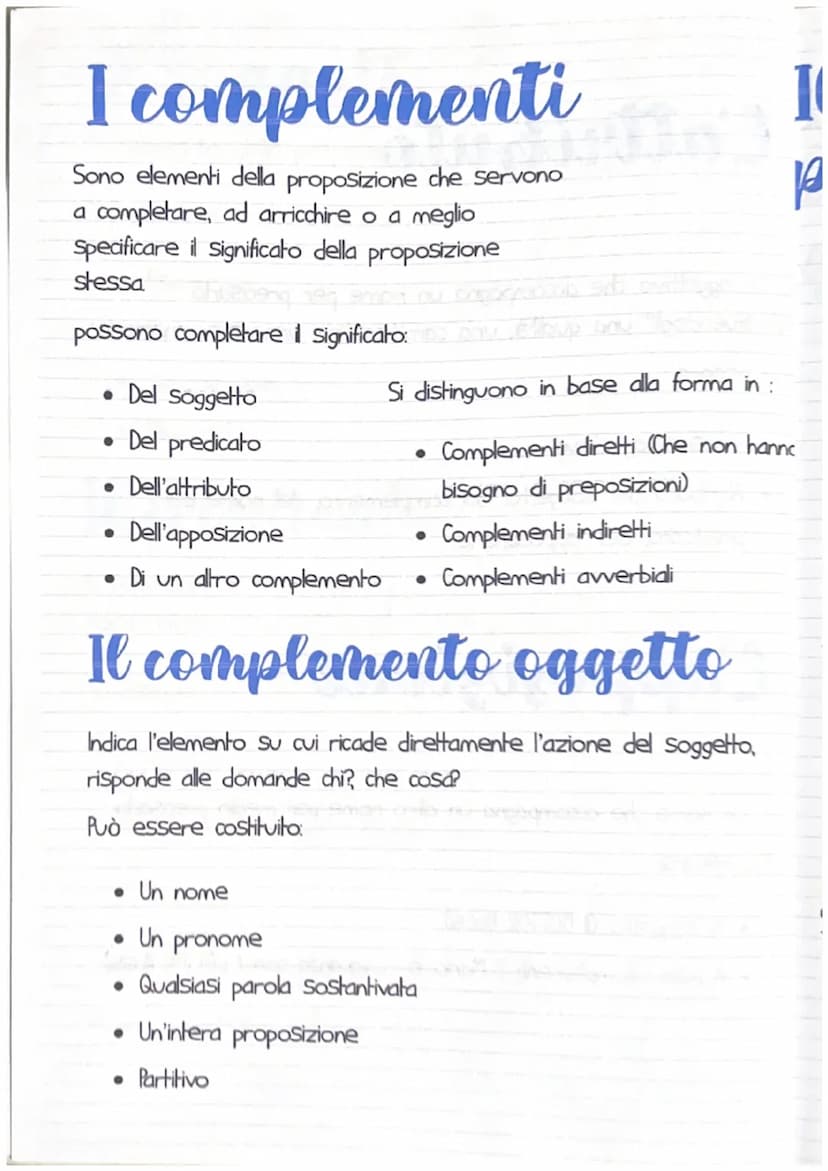 I complementi
Sono elementi della proposizione che servono
a completare, ad arricchire o a meglio
Specificare il significato della proposizione
stessa
possono completare il significato:
• Del soggetto
• Del predicato
• Dell'attributo
• Dell'apposizione
• Di un altro complemento
Si distinguono in base alla forma in :
• Complementi diretti (Che non hanno
bisogno di preposizioni)
• Complementi indiretti
• Complementi avverbiali
Il complemento oggetto
Indica l'elemento su cui ricade direttamente l'azione del soggetto,
risponde alle domande chi? che cosa?
Può essere costituito:
• Un nome
• Un pronome
• Qualsiasi parola sostantivata
• Un'intera proposizione
• Partitivo